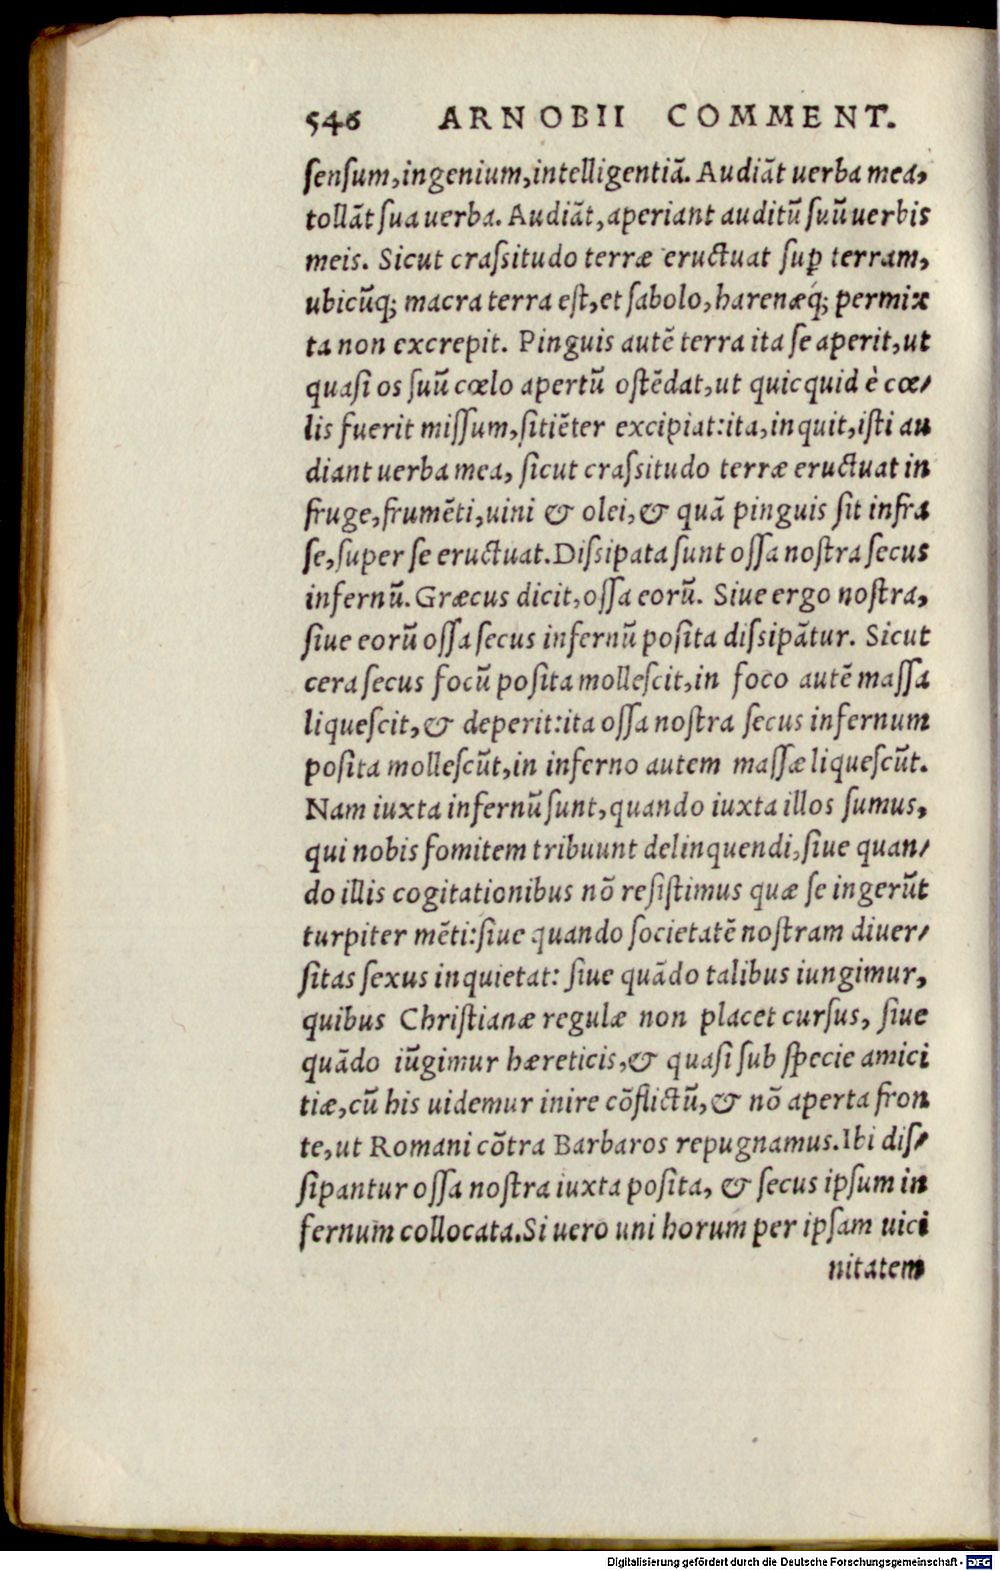 546 ARNOBII COMMENT.
ſenſum, ingenium, intelligentiā. Audiāt uerba mea,
tollāt ſua uerba. Audiāt, aperiant auditū ſuū uerbis
meis. Sicut craſsitudo terræ eructuat ſuꝑ terram,
ubicūq; macra terra eſt, et ſabolo, harenæq́; permix
ta non excrepit. Pinguis autē terra ita ſe aperit, ut
quaſi os ſuū cœlo apertū oſtēdat, ut quicquid è cœ/
lis fuerit miſſum, ſitiēter excipiat: ita, inquit, iſti au
diant uerba mea, ſicut craſsitudo terræ eructuat in
fruge, frumēti, uini & olei, & quā pinguis ſit infra
ſe, ſuper ſe eructuat. Diſsipata ſunt oſſa noſtra ſecus
infernū. Græcus dicit, oſſa eorū. Siue ergo noſtra,
ſiue eorū oſſa ſecus infernū poſita diſsipātur. Sicut
cera ſecus focū poſita molleſcit, in foco autē maſſa
liqueſcit, & deperit: ita oſſa noſtra ſecus infernum
poſita molleſcūt, in inferno autem maſſæ liqueſcūt.
Nam iuxta infernū ſunt, quando iuxta illos ſumus,
qui nobis fomitem tribuunt delinquendi, ſiue quan/
do illis cogitationibus nō reſiſtimus quæ ſe ingerūt
turpiter mēti: ſiue quando ſocietatē noſtram diuer/
ſitas ſexus inquietat: ſiue quādo talibus iungimur,
quibus Chriſtianæ regulæ non placet curſus, ſiue
quādo iūgimur hæreticis, & quaſi ſub ſpecie amici
tiæ, cū his uidemur inire cōflictū, & nō aperta fron
te, ut Romani cōtra Barbaros repugnamus. Ibi diſ/
ſipantur oſſa noſtra iuxta poſita, & ſecus ipſum in
fernum collocata. Si uero uni horum per ipſam uici
nitatem
Digitalisierung gefördert durch die Deutsche Forschungsgemeinschaft - DFG